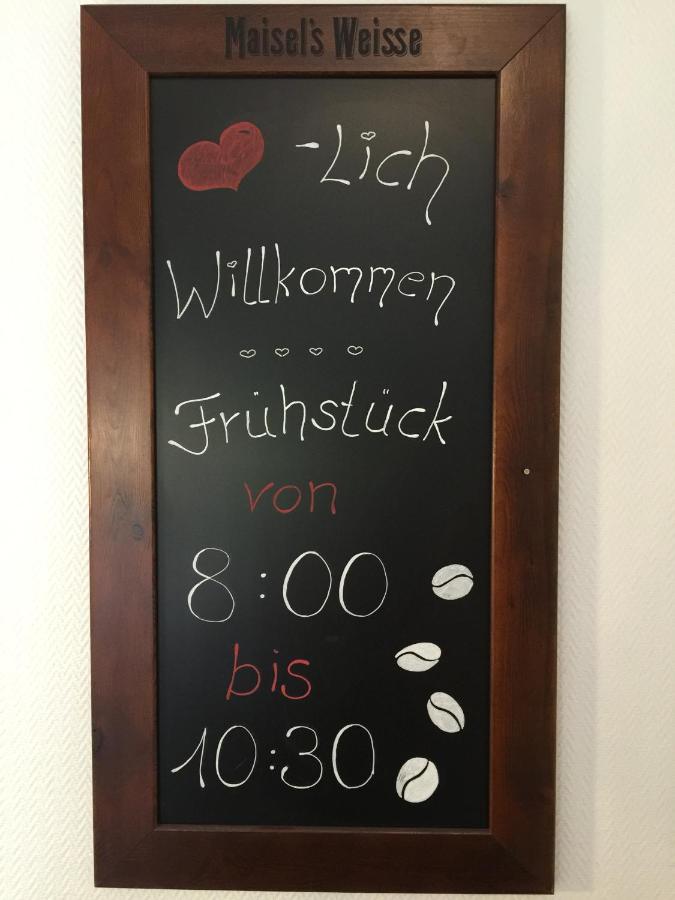 Maisel's Weisse
-Lich
Willkommen
Frühstück
von
8:00
bis
10:30